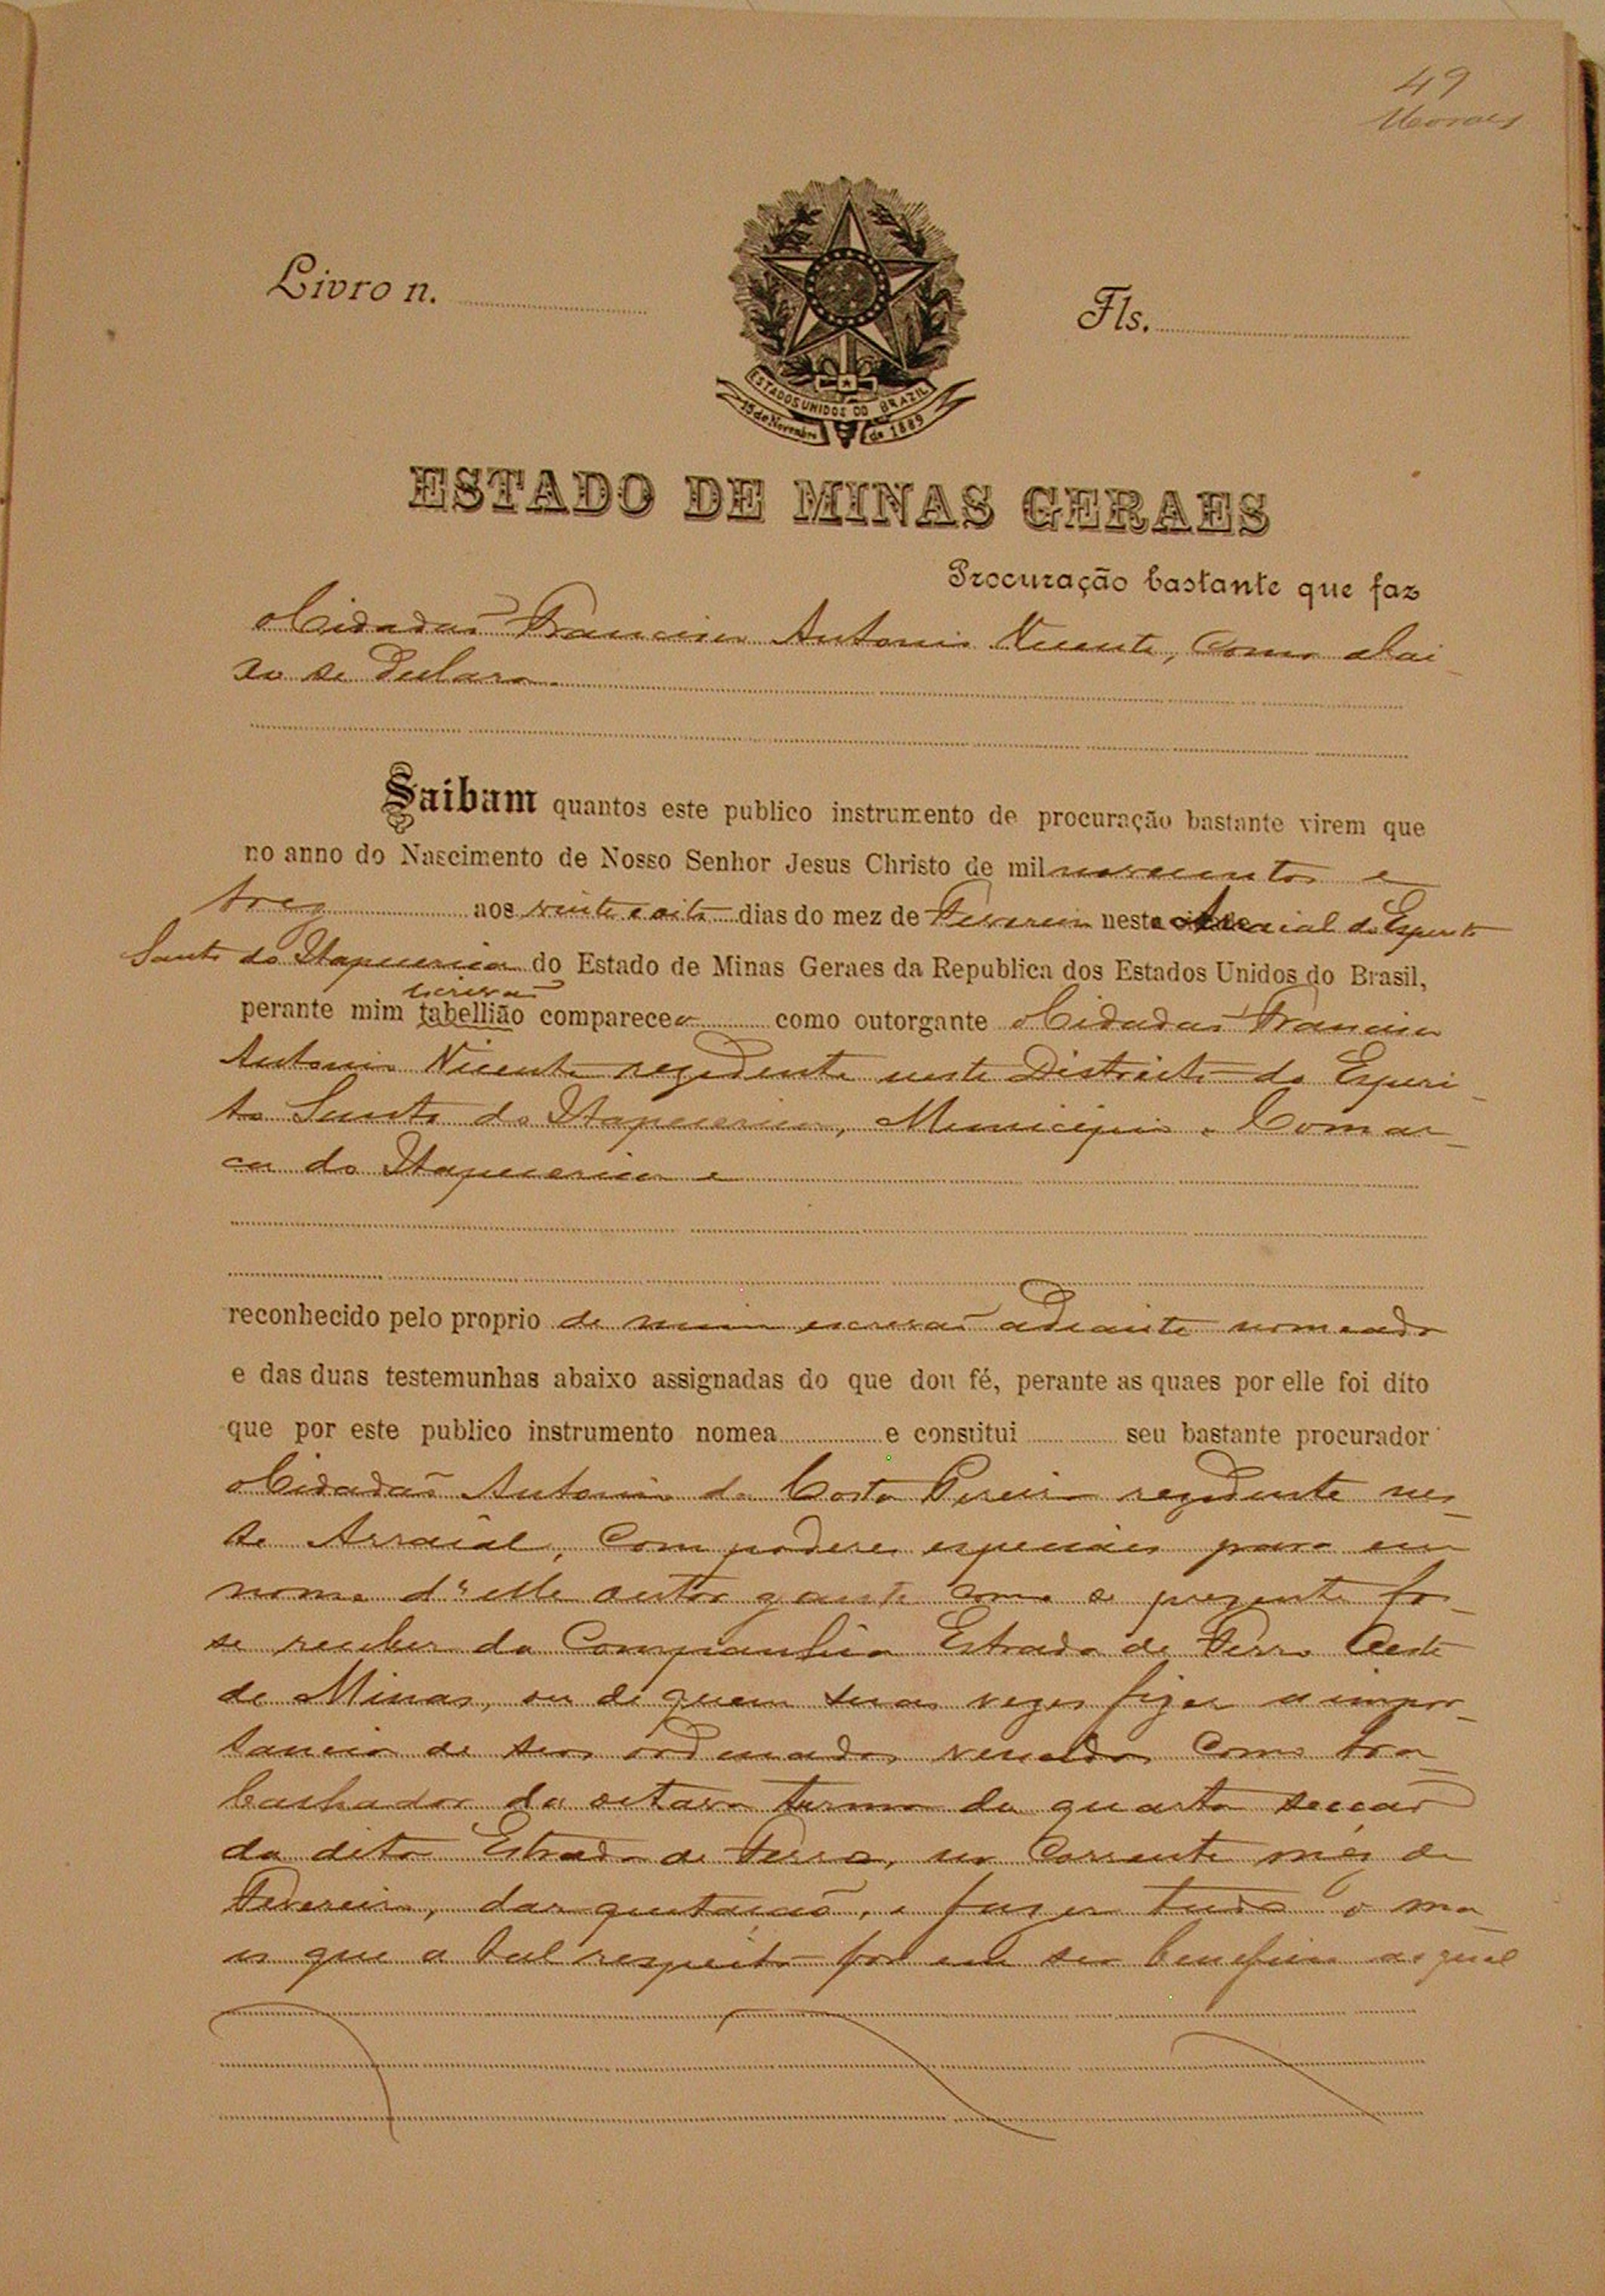 49
Moraes
Livro n.
Fls.
ESTADOS UNIDOS DO BRAZIL
15 de Novembro de 1889
ESTADO DE MINAS GERAES
Procuração bastante que faz
o Cidadaõ Francisco Antonio Vicente, Como abai
xo se declara.
Saibam quantos este publico instrumento de procuração bastante virem que
no anno do Nascimento de Nosso Senhor Jesus Christo de mil novecentos e
trez aos vinte e oito dias do mez de Fevereiro neste Arraial do Esperito
Santo do Itapecerica do Estado de Minas Geraes da Republica dos Estados Unidos do Brasil,
escrivaõ
perante mim tabellião compareceo como outorgante o Cidadaõ Francisco
Antonio Vicente rezidente neste Districto do Esperi
to Santo do Itapecerica, Municipio e Comar
ca do Itapecerica e
reconhecido pelo proprio de mim escrivaõ adiante nomeado
e das duas testemunhas abaixo assignadas do que dou fé, perante as quaes por elle foi dito
que por este publico instrumento nomea e constitui seu bastante procurador
o Cidadaõ Antonio da Costa Pereira rezidente nes
te Arraial, Com poderes especiáes para em
nome d'elle outorgante como se prezente fo
se receber da Companhia Estrada de Ferro Oeste
de Minas, ou de quem suas vezes fizer a impor
tancia de seos ordenados vencidos Como tra
balhador da oitava turma da quarta secçaõ
da dita Estrada de Ferro, no Corrente mes de
Fevereiro, dar quitacaõ, e fazer tudo o ma
is que a tal respeito for em seo beneficio as qual